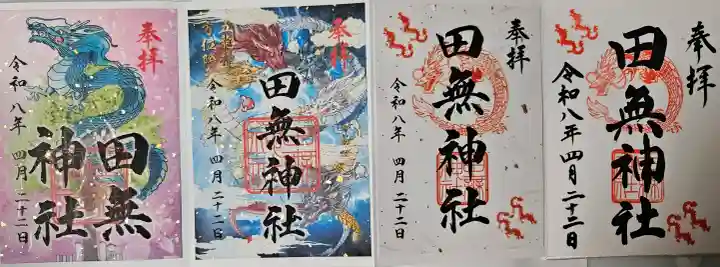 奉拝
田無
神社
令和八年 四月二十二日
奉拝
田無神社
令和八年 四月二十二日
奉拝
田無神社
令和八年 四月二十二日
奉拝
田無神社
令和八年四月二十二日